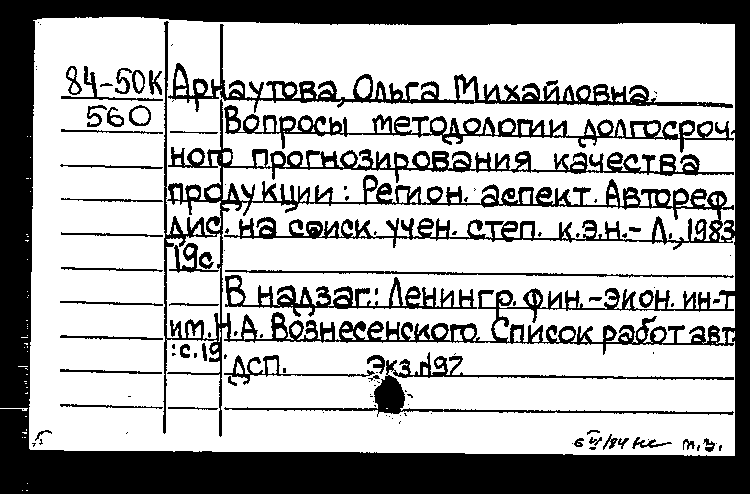 84-50К Арнаутова, Ольга Михайловна.
560 Вопросы методологии долгосроч-
ного прогнозирования качества
продукции: Регион. аспект. Автореф.
дис. на соиск. учен. степ. к.э.н.- Л., 1983
19с.
В надзаг.: Ленингр. фин.-экон. ин-т
им. Н.А. Вознесенского. Список работ авт.
: с.19.
ДСП. Экз.№97.